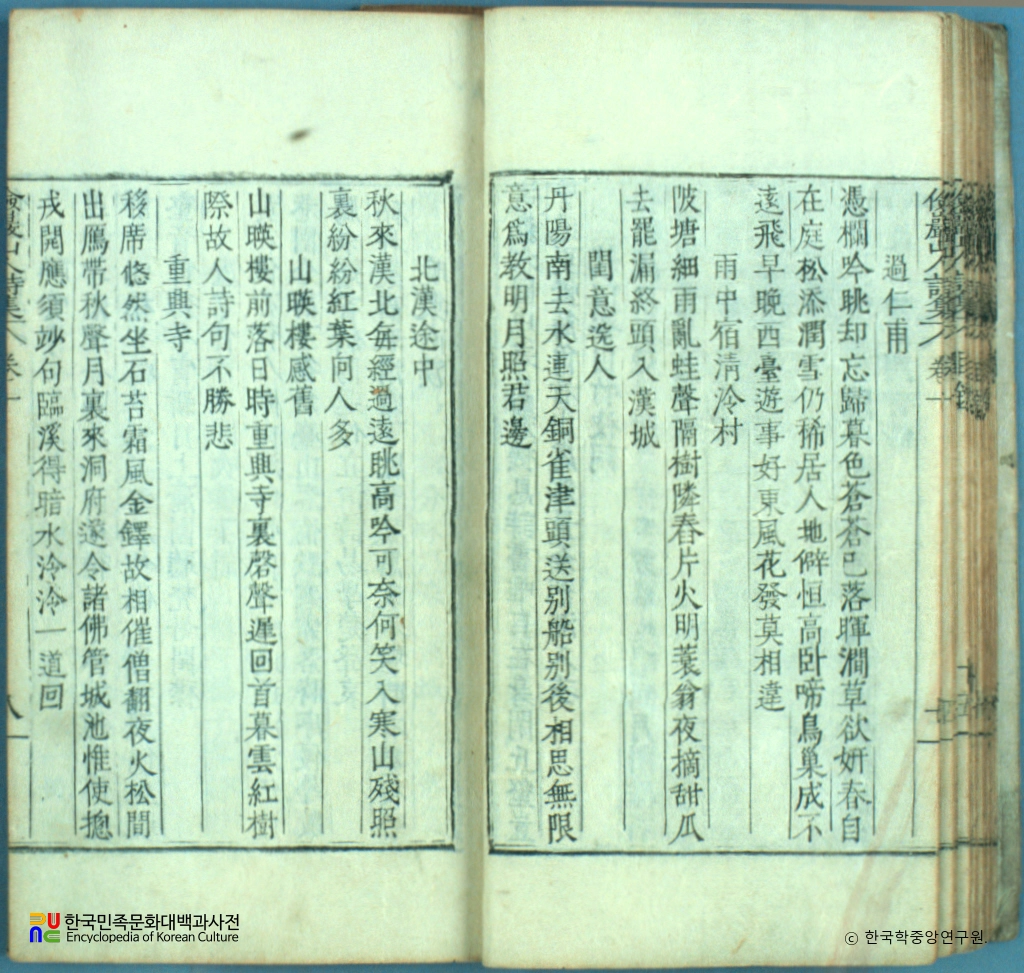 過仁甫
憑欄吟眺却忘歸暮色蒼蒼已落暉澗草欲姸春自
在庭松添潤雪仍稀居人地僻恒高卧啼鳥巢成不
遠飛早晚西臺遊事好東風花發莫相違
雨中宿淸泠村
陂塘細雨亂蛙聲隔樹隣舂片火明蓑翁夜摘甜瓜
去罷漏終頭入漢城
閨意送人
丹陽南去水連天銅雀津頭送别船别後相思無限
意爲教明月照君邊
北漢途中
秋來漢北每經過遠眺高吟可奈何笑入寒山殘照
裏紛紛紅葉向人多
山暎樓感舊
山暎樓前落日時重興寺裏磬聲遲回首暮雲紅樹
際故人詩句不勝悲
重興寺
移席悠然坐石苔霜風金鐸故相催僧翻夜火松間
出鴈帶秋聲月裏來洞府遂令諸佛管城池惟使摠
戎開應須玅句臨溪得暗水泠泠一道回
卷一
八
한국민족문화대백과사전
Encyclopedia of Korean Culture
ⓒ 한국학중앙연구원.